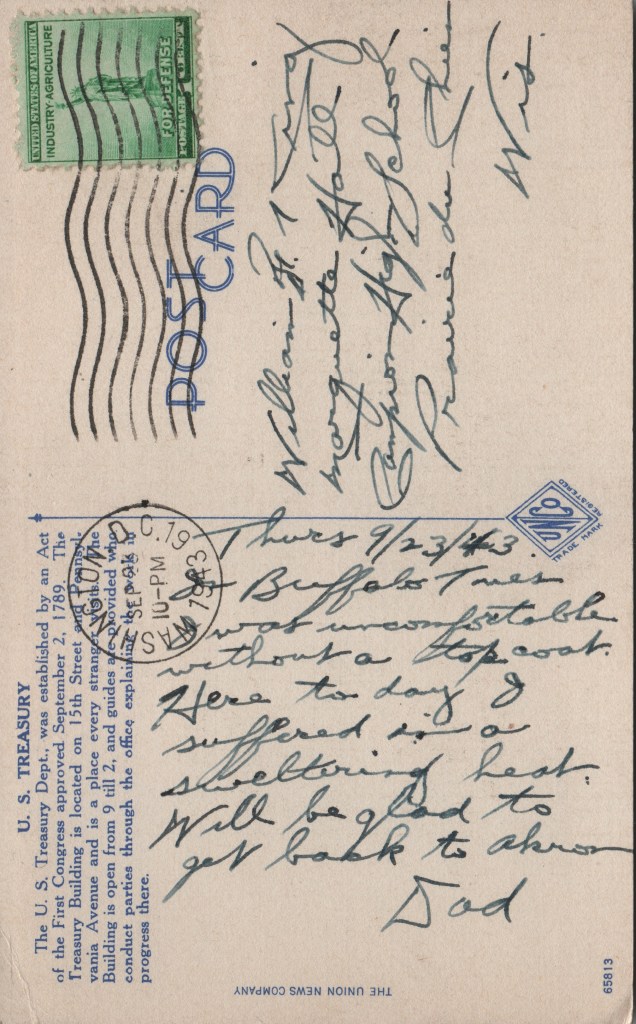 U. S. TREASURY
The U. S. Treasury Dept., was established by an Act
of the First Congress approved September 2, 1789. The
Treasury Building is located on 15th Street and Pennsyl-
vania Avenue and is a place every stranger visits. The
Building is open from 9 till 2, and guides are provided who
conduct parties through the office explaining the work in
progress there.
Thurs 9/23/43.
In Buffalo Tues
I was uncomfortable
without a top coat.
Here to day I
suffered in a
sweltering heat.
Will be glad to
get back to Akron
Dad
THE UNION NEWS COMPANY
65813
UNCO
TRADE MARK
REGISTERED
WASHINGTON D.C. 19
SEP 23
10-PM
1943
POST CARD
UNITED STATES OF AMERICA
INDUSTRY-AGRICULTURE
FOR DEFENSE
POSTAGE 1 CENT
William F.
Marquette Hall
Campion High School
Prairie du Chien
Wis.